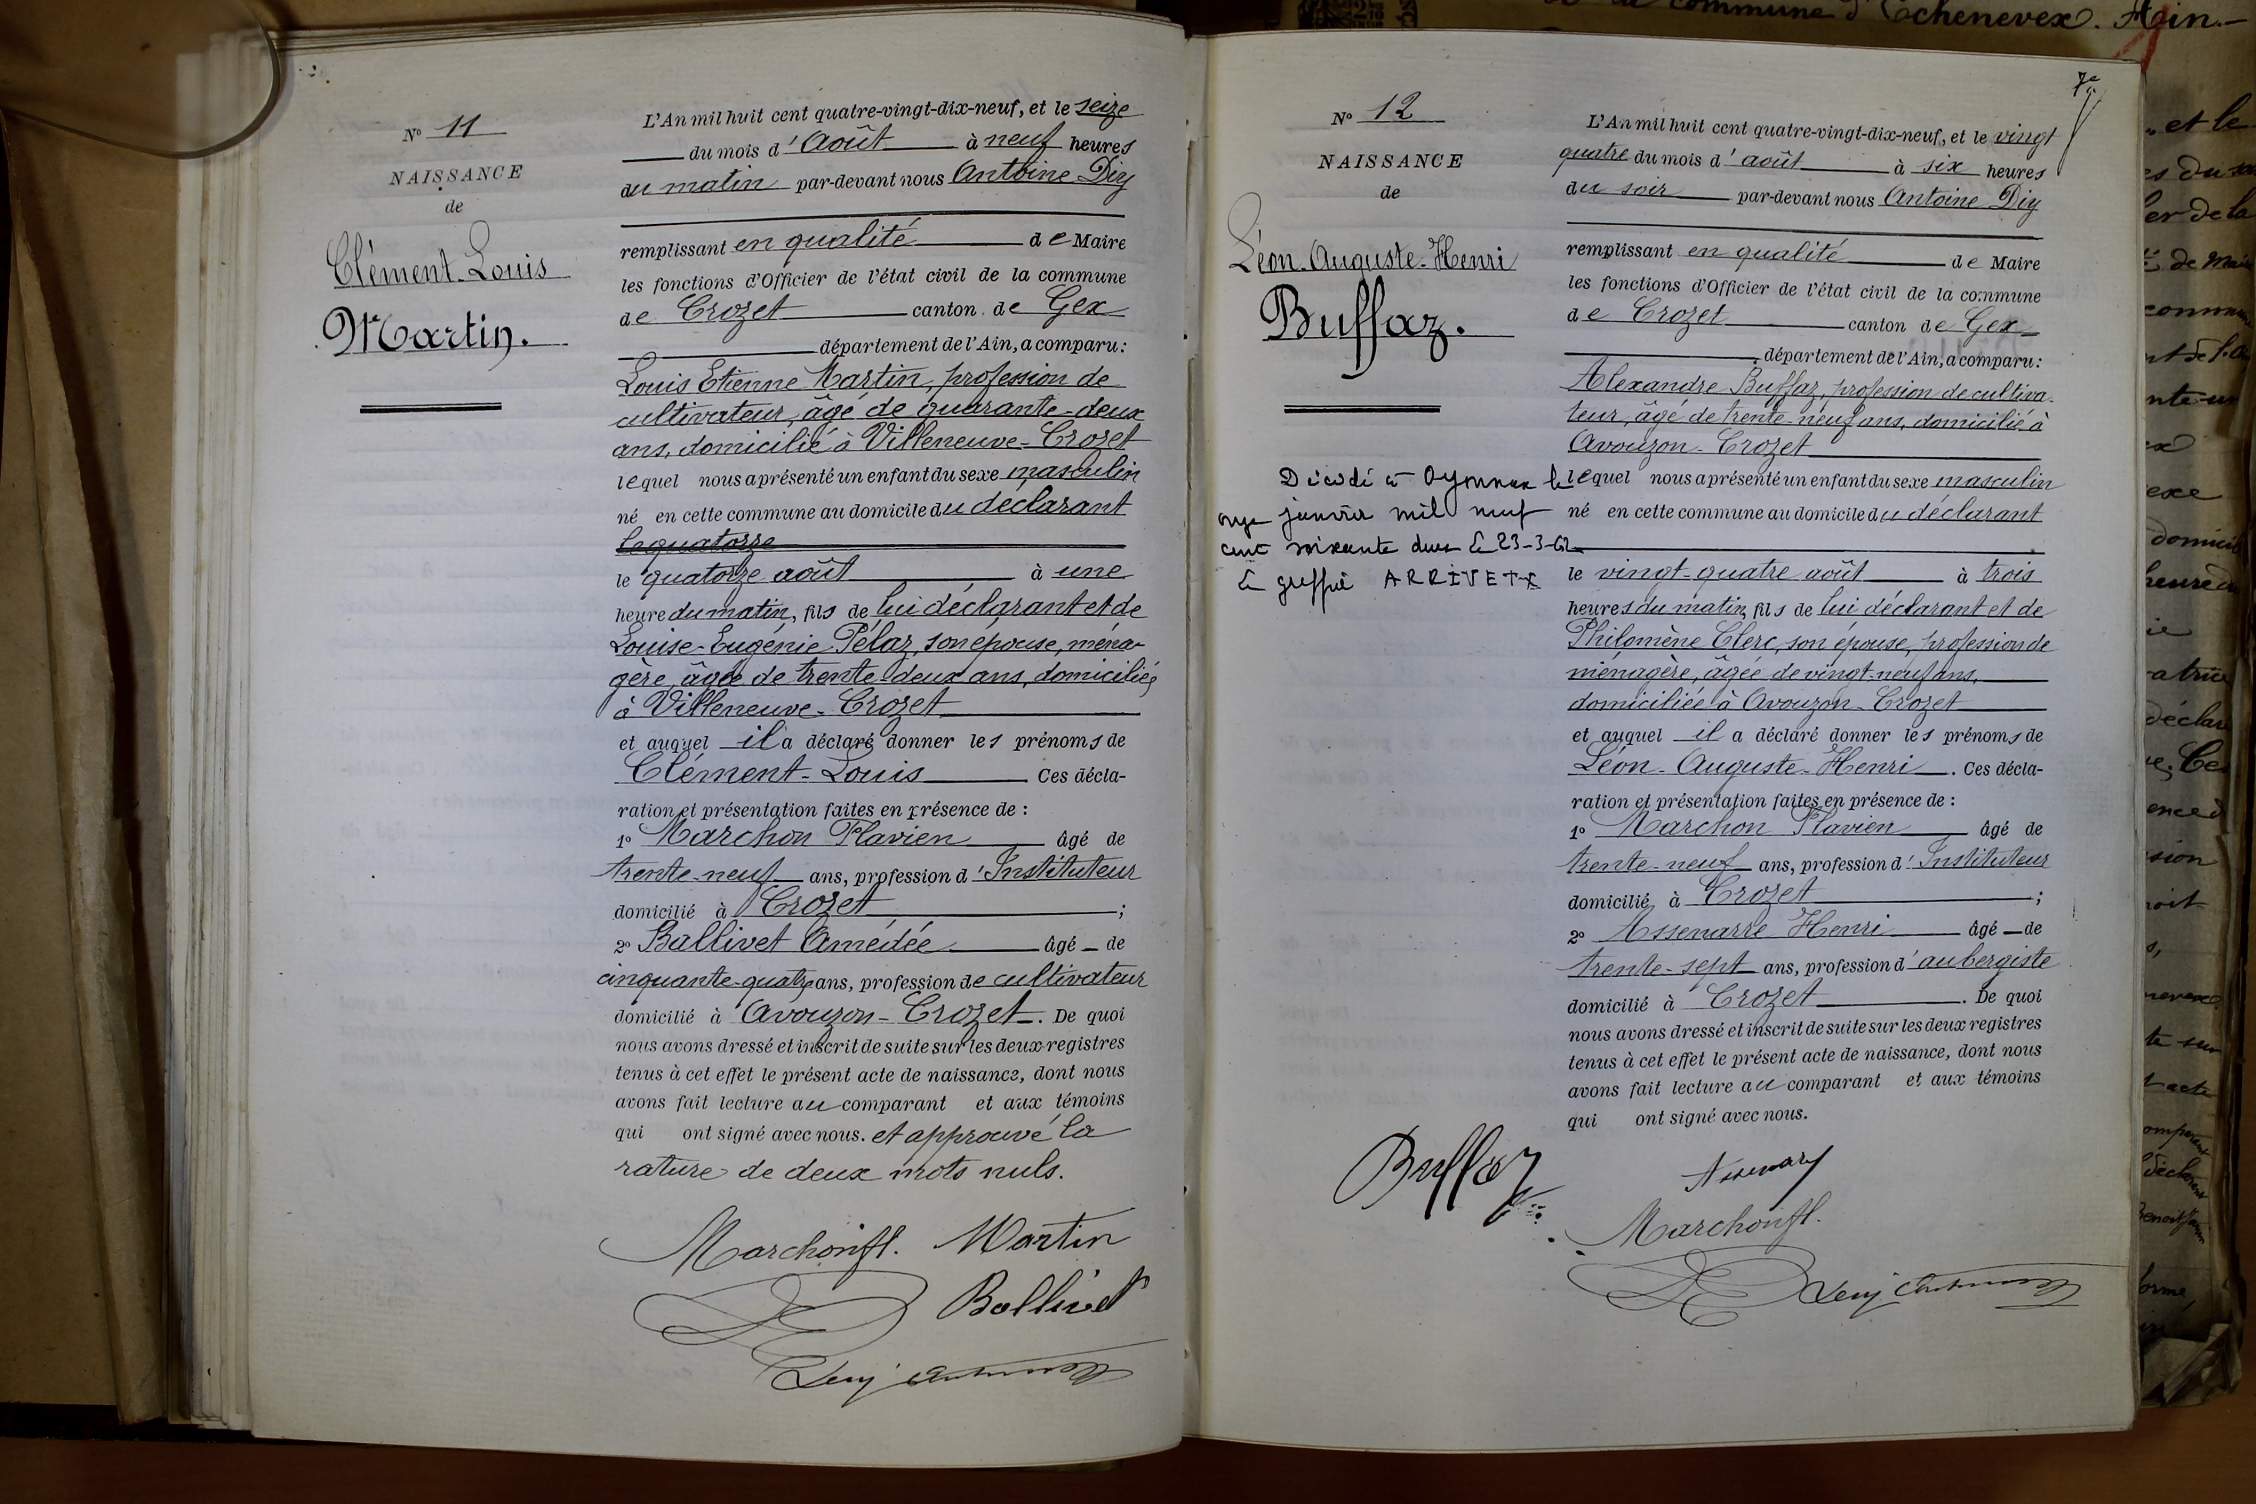 N° 11
NAISSANCE
de
Clément-Louis
Martin.
L'An mil huit cent quatre-vingt-dix-neuf, et le seize
du mois d'Août à neuf heures
du matin par-devant nous Antoine Diy
remplissant en qualité de Maire
les fonctions d'Officier de l'état civil de la commune
de Crozet canton de Gex
département de l'Ain, a comparu :
Louis Etienne Martin, profession de
cultivateur, âgé de quarante-deux
ans, domicilié à Villeneuve-Crozet
lequel nous a présenté un enfant du sexe masculin
né en cette commune au domicile du déclarant
le quatorze
le quatorze août à une
heure du matin, fils de lui déclarant et de
Louise-Eugénie Pélaz, son épouse, ména-
gère, âgée de trente deux ans, domiciliés
à Villeneuve-Crozet
et auquel il a déclaré donner les prénoms de
Clément-Louis Ces décla-
ration et présentation faites en présence de :
1° Marchon Flavien âgé de
trente-neuf ans, profession d'Instituteur
domicilié à Crozet ;
2° Ballivet Amédée âgé de
cinquante-quatre ans, profession de cultivateur
domicilié à Avouzon-Crozet. De quoi
nous avons dressé et inscrit de suite sur les deux registres
tenus à cet effet le présent acte de naissance, dont nous
avons fait lecture au comparant et aux témoins
qui ont signé avec nous. et approuvé la
rature de deux mots nuls.
Marchon fl. Martin
Ballivet
N° 12
NAISSANCE
de
Léon-Auguste-Henri
Buffaz.
Décédé à Oyonnax le
onze janvier mil neuf
cent soixante deux le 23-3-62
Le greffier ARRIVETX
7e
L'An mil huit cent quatre-vingt-dix-neuf, et le vingt
quatre du mois d'août à six heures
du soir par-devant nous Antoine Diy
remplissant en qualité de Maire
les fonctions d'Officier de l'état civil de la commune
de Crozet canton de Gex
département de l'Ain, a comparu :
Alexandre Buffaz, profession de cultiva-
teur, âgé de trente-neuf ans, domicilié à
Avouzon-Crozet
lequel nous a présenté un enfant du sexe masculin
né en cette commune au domicile du déclarant
le vingt-quatre août à trois
heures du matin, fils de lui déclarant et de
Philomène Clerc, son épouse, profession de
ménagère, âgée de vingt-neuf ans,
domiciliée à Avouzon-Crozet
et auquel il a déclaré donner les prénoms de
Léon-Auguste-Henri. Ces décla-
ration et présentation faites en présence de :
1° Marchon Flavien âgé de
trente-neuf ans, profession d'Instituteur
domicilié à Crozet ;
2° Assenarre Henri âgé de
trente-sept ans, profession d'aubergiste
domicilié à Crozet. De quoi
nous avons dressé et inscrit de suite sur les deux registres
tenus à cet effet le présent acte de naissance, dont nous
avons fait lecture au comparant et aux témoins
qui ont signé avec nous.
Buffaz
Marchon fl.
commune d'Echenevex. Ain.
et le